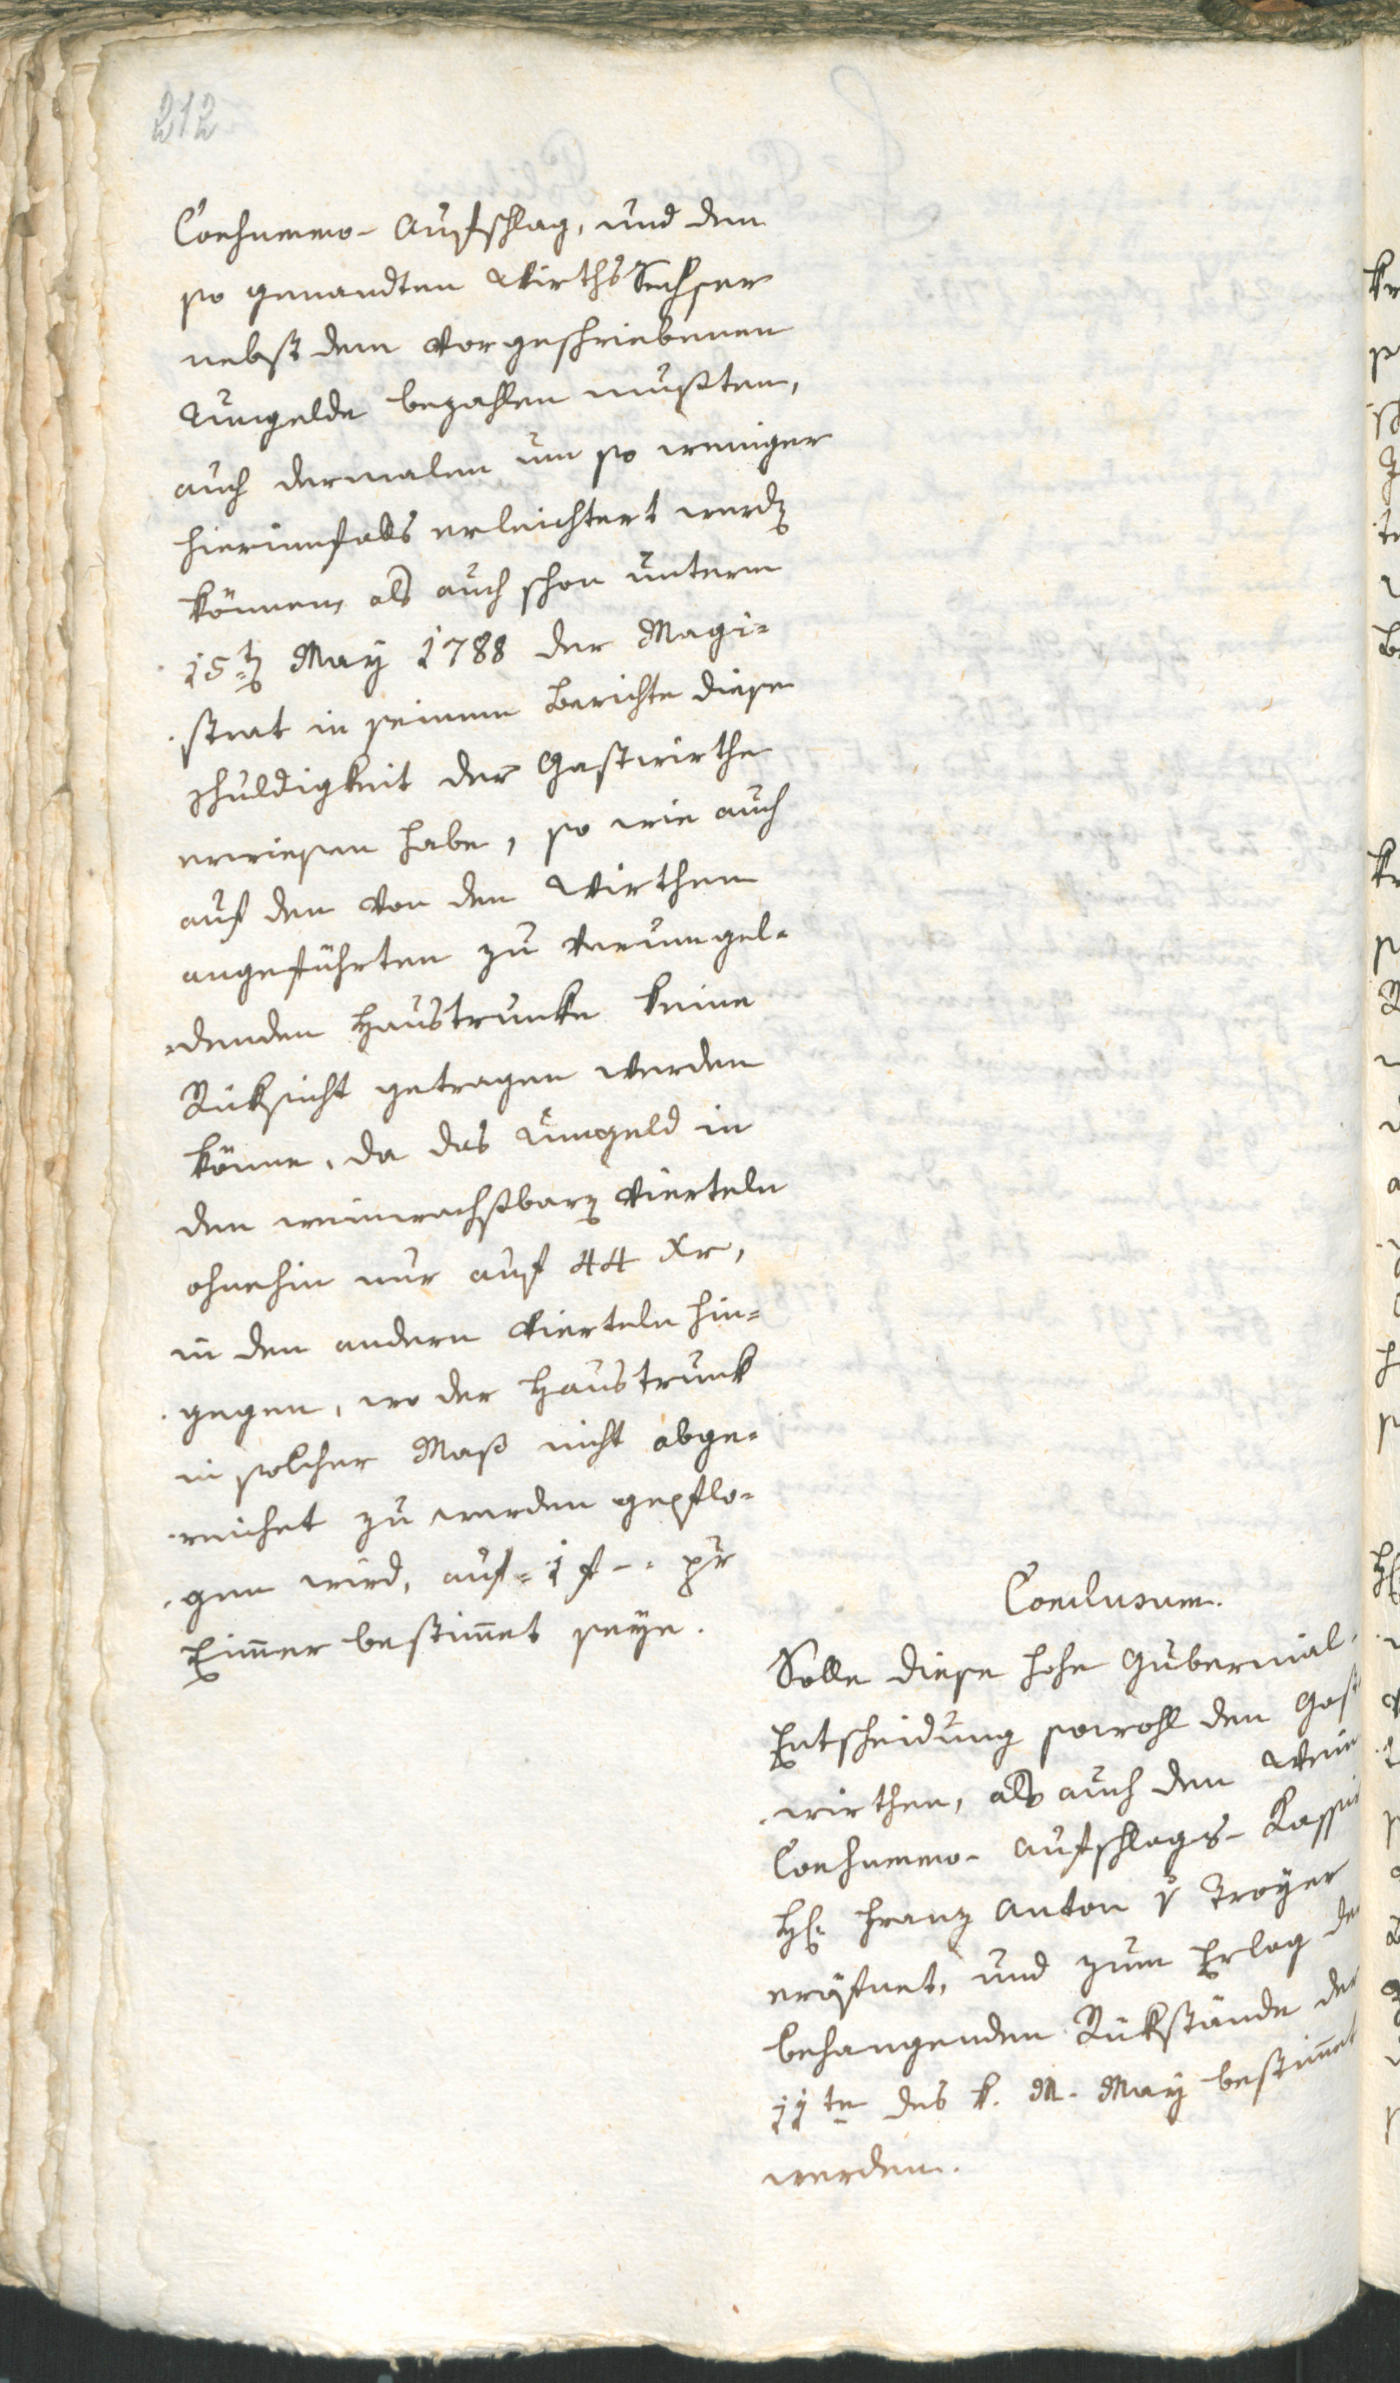 212
Consummo- Aufschlag, und dem
so genandten WirthsSechser
nebst dem vorgeschriebenen
Umgelde bezahlen mußten,
auch dermalen um so weniger
hierinnfalls erleichtert werdn
können, als auch schon unterm
15tn May 1788 der Magi=
strat in seinem Berichte diese
Schuldigkeit der Gastwirthe
erwiesen habe, so wie auch
auf den von den Wirthen
angeführten zu verumgel=
denden Haustrunke keine
Rüksicht getragen werden
könne, da das Umgeld in
den weinwachsbarn Vierteln
ohnehin nur auf 44 Xr,
in den andern Vierteln hin=
gegen, wo der Haustrunk
in solcher Maß nicht abge=
reichet zu werden gepflo=
gen wird, auf = 1 f -. pr
Eimmer bestimmet seye.
Conclusum.
Solle diese hohe Gubernial=
Entscheidung sowohl den Gast
wirthen, als auch dem Wein
Consummo- Aufschlags- Kassier
H: Franz Anton v Troyer
eröfnet, und zum Erlag der
behangenden Rükstände der
11te des k. M. May bestimmet
werden.